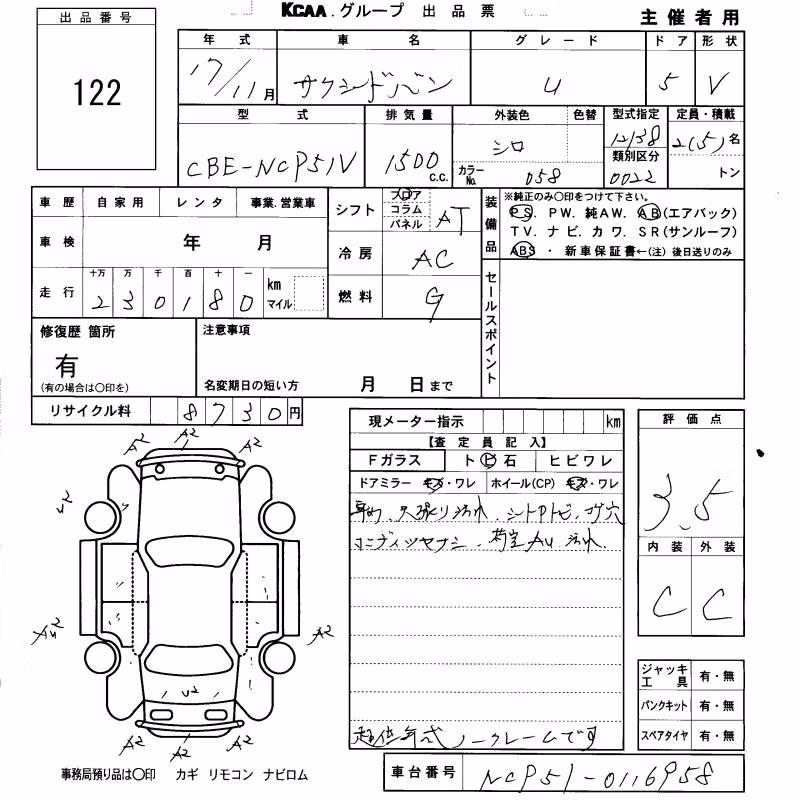 出品番号
122
KCAA.グループ 出品票
主催者用
年式 車名 グレード ドア 形状
17/11月 サクシードバン U 5 V
型式 排気量 外装色 色替 型式指定 定員・積載
CBE-NCP51V 1500 c.c. シロ 12138 2(5)名
カラーNo. 058 類別区分 0022 トン
車歴 自家用 レンタ 事業.営業車
車検 年 月
走行 十万 万 千 百 十 一 km マイル
230180
シフト フロア コラム パネル AT
冷房 AC
燃料 G
装備品
※純正のみ〇印をつけて下さい。
PS. PW. 純AW. AB(エアバック)
TV. ナビ. カワ. SR(サンルーフ)
ABS ・ 新車保証書←(注) 後日送りのみ
セールスポイント
修復歴 箇所
有
(有の場合は〇印を)
注意事項
名変期日の短い方 月 日まで
リサイクル料 8730円
現メーター指示 km
【査定員記入】
Fガラス ト ビ 石 ヒビワレ
ドアミラー キズ・ワレ ホイール(CP) キズ・ワレ
天張り汚れ、シート コゲ穴
ボディツヤナシ. 荷室AU 汚れ.
年式 ノークレームです
評価点
3.5
内装 外装
C C
A2 A2 A2
U2
A2 A2
U2
A2 A2 A2
ジャッキ 工具 有・無
パンクキット 有・無
スペアタイヤ 有・無
事務局預り品は〇印 カギ リモコン ナビロム
車台番号 NCP51-0116958